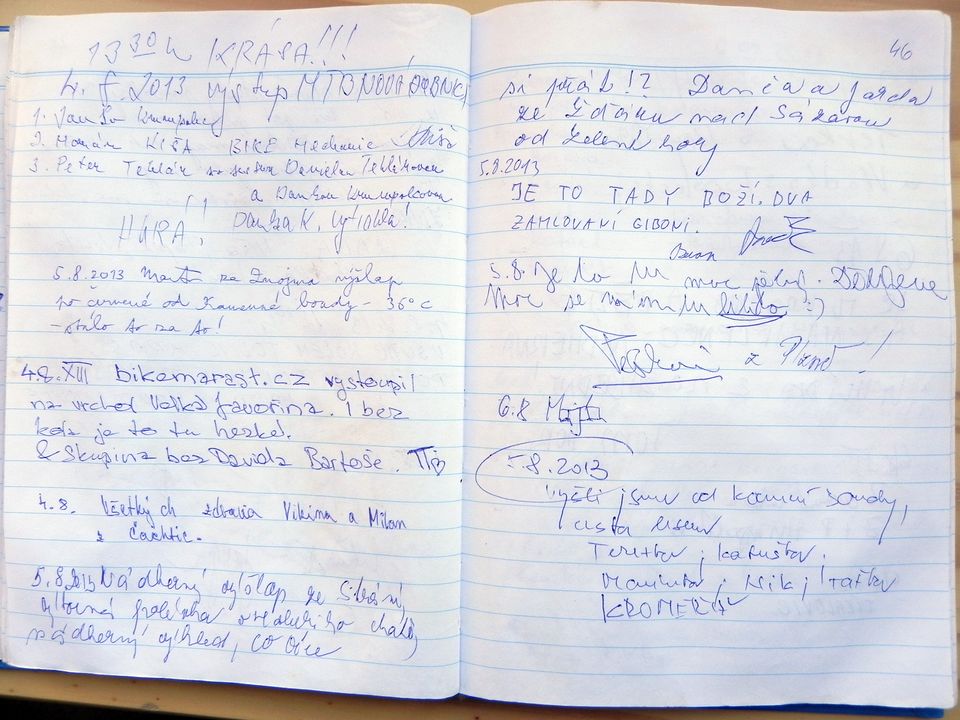 13 30 h KRÁSA!!!
4. 8. 2013 výstup MTB NOVÁ DUBNICA
1. Janko Krumpolec
2. Marián KIŠA BIKE Mechanic
3. Peter Teklár so sestrou Danielou Teklárovou
a Dankou Krumpolcovou
HURÁ! Danka K. vytiahla!
5.8.2013 Martin ze Znojma výšlap
po červené od Kamenné boudy - 36°C
- stálo to za to!
4.8. XIII bikemarast.cz vystoupil
na vrchol Velká Javořina. I bez
kola je to tu hezké.
& Skupina bez Davida Bartoše.
4.8. Všetkých zdravia Vikina a Milan
z Čachtic.
5.8.2013 Nádherný výšlap ze Strání,
výborná polévka vedle chaty,
nádherný výhled, co více
46
si přát!? Danča a Jarda
ze Žďáru nad Sázavou
od Zelené hory
5.8.2013
JE TO TADY BOŽÍ. DVA
ZAMILOVANÍ GIBONI.
5.8. Je to tu moc pěkné.
Moc se nám tu líbilo :)
z Plzně!
6.8
5.8.2013
Vyšli jsme od kamenné boudy,
cesta
Terezka, Katuška,
Niki, Taťka
KROMĚŘÍŽ